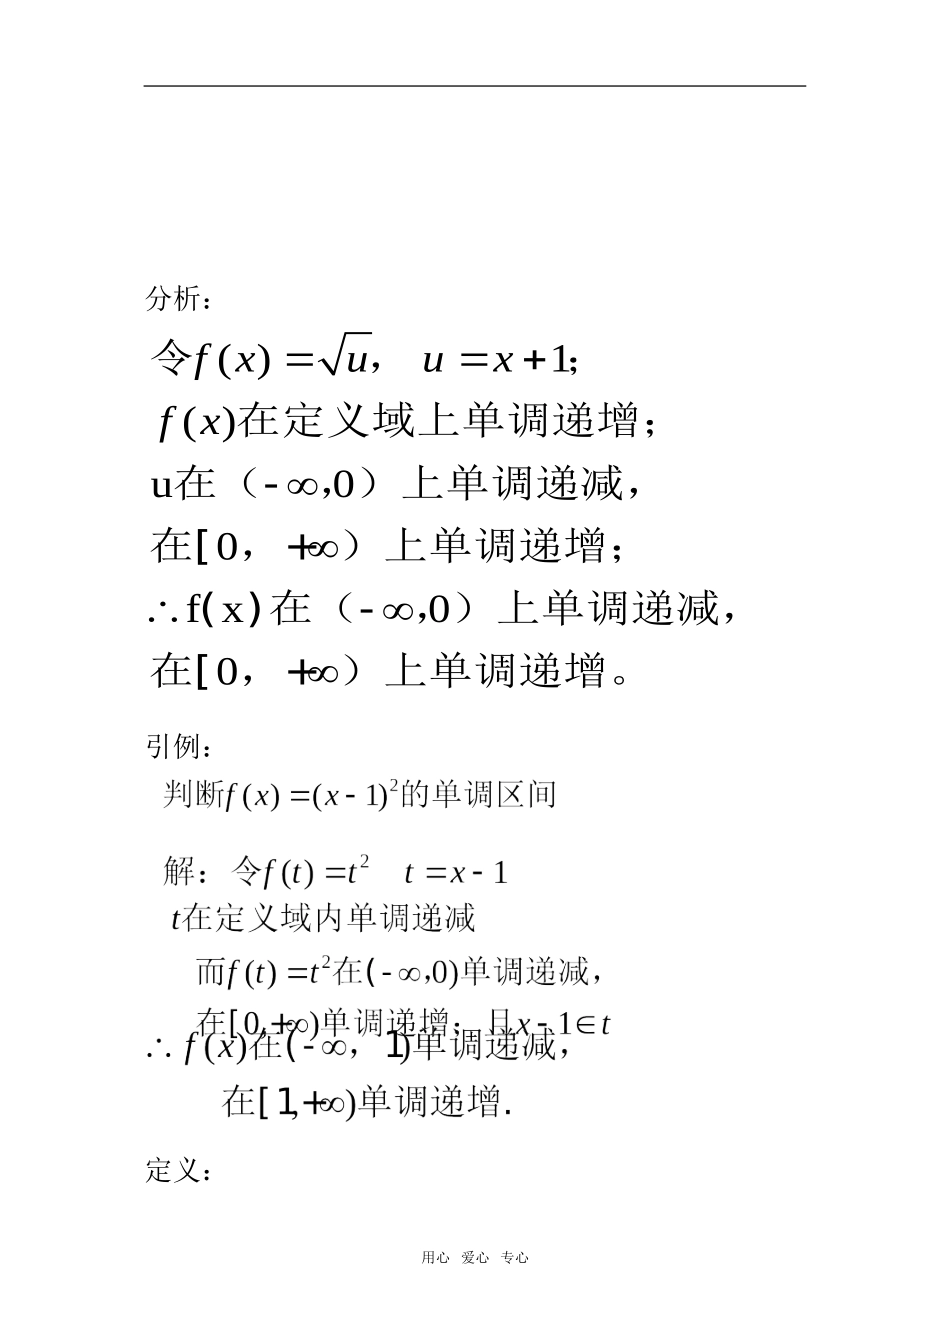 分析：
令f(x)=√u， u=x+1；
f(x)在定义域上单调递增；
u在（-∞,0）上单调递减，
在[0，+∞）上单调递增；
∴f(x)在（-∞,0）上单调递减，
在[0，+∞）上单调递增。
引例：
判断f(x)=(x-1)²的单调区间
解：令f(t)=t² t=x-1
t在定义域内单调递减
而f(t)=t²在(-∞,0)单调递减，
在[0,+∞)单调递增；且x-1∈t
∴ f(x)在(-∞，1)单调递减，
在[1,+∞)单调递增.
定义：
用心 爱心 专心